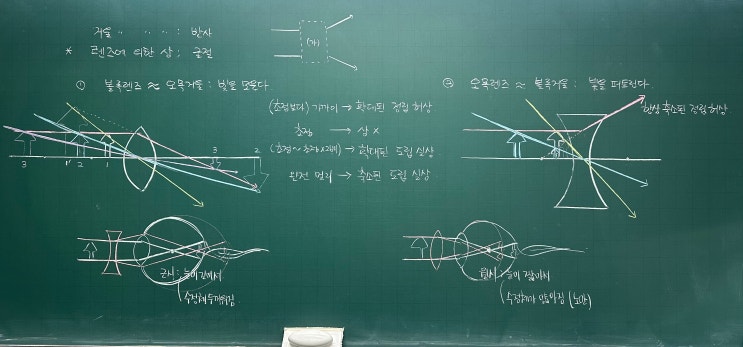 거울 〃 〃 〃 : 반사
* 렌즈에 의한 상 : 굴절
(가)
① 볼록렌즈 ≈ 오목거울 : 빛을 모은다
(초점보다) 가까이 → 확대된 정립 허상
초점 → 상 ×
(초점~초점×2배) → 확대된 도립 실상
완전 멀리 → 축소된 도립 실상
3 1' 2 1
3 2
② 오목렌즈 ≈ 볼록거울 : 빛을 퍼트린다.
항상 축소된 정립 허상.
근시 : 눈이 길어서
수정체 두꺼워짐
원시 : 눈이 짧아서
수정체가 얇아짐 (노안)